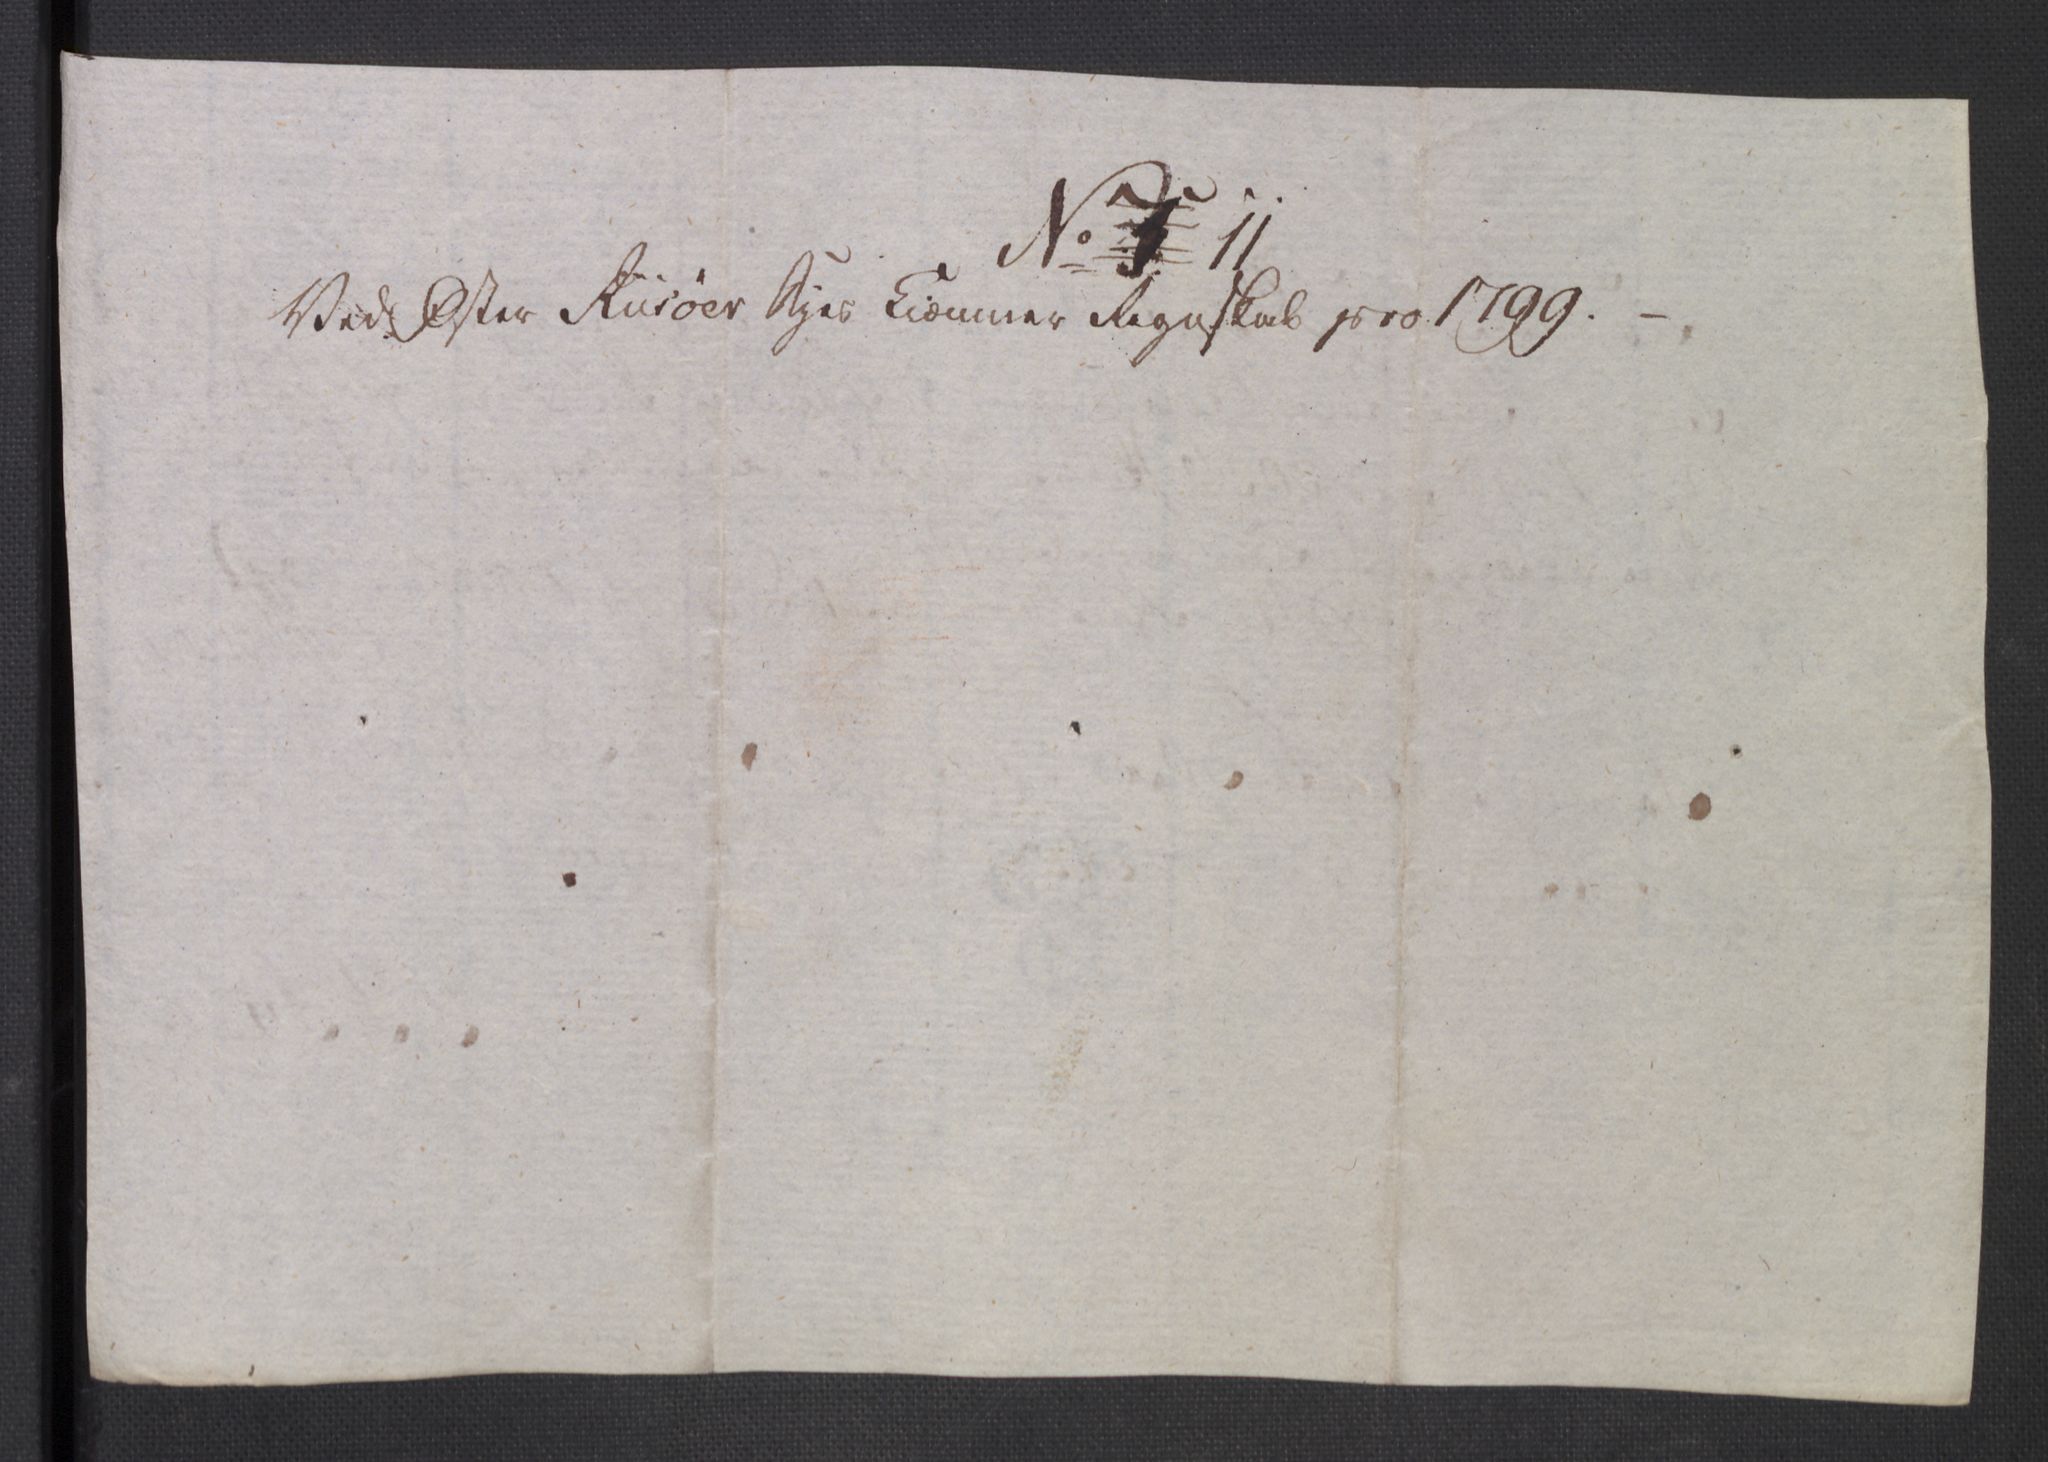 No 11
Ved Øster Riisöer Byes Kiæmner Regnskab pro 1799. –